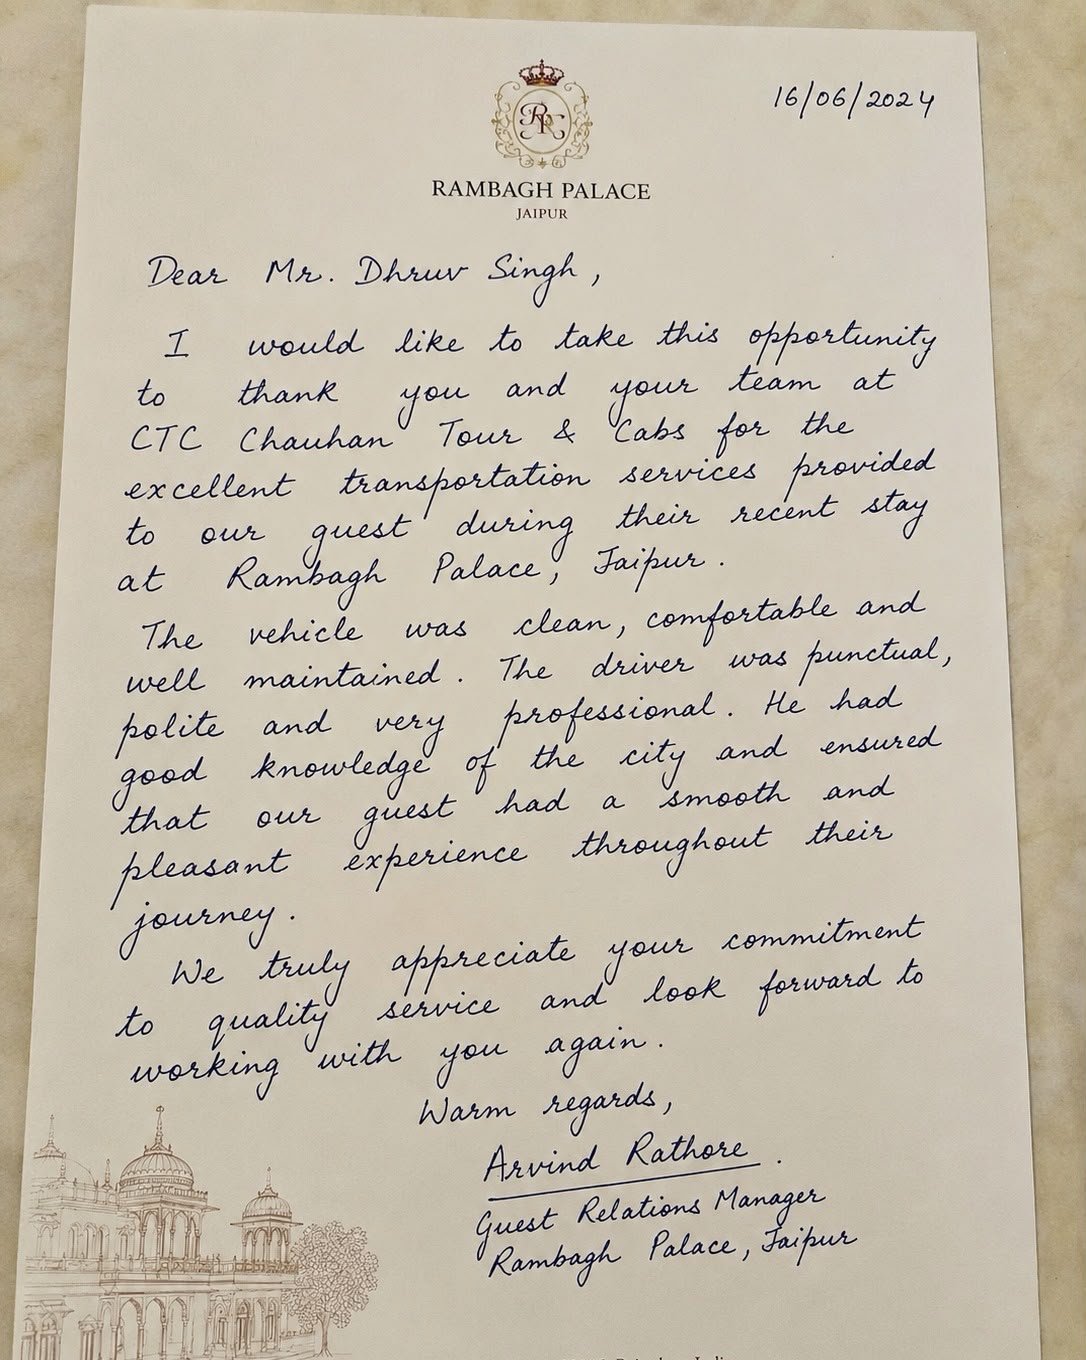 16/06/2024
RAMBAGH PALACE
JAIPUR
Dear Mr. Dhruv Singh,
I would like to take this opportunity
to thank you and your team at
CTC Chauhan Tour & Cabs for the
excellent transportation services provided
to our guest during their recent stay
at Rambagh Palace, Jaipur.
The vehicle was clean, comfortable and
well maintained. The driver was punctual,
polite and very professional. He had
good knowledge of the city and ensured
that our guest had a smooth and
pleasant experience throughout their
journey.
We truly appreciate your commitment
to quality service and look forward to
working with you again.
Warm regards,
Arvind Rathore.
Guest Relations Manager
Rambagh Palace, Jaipur